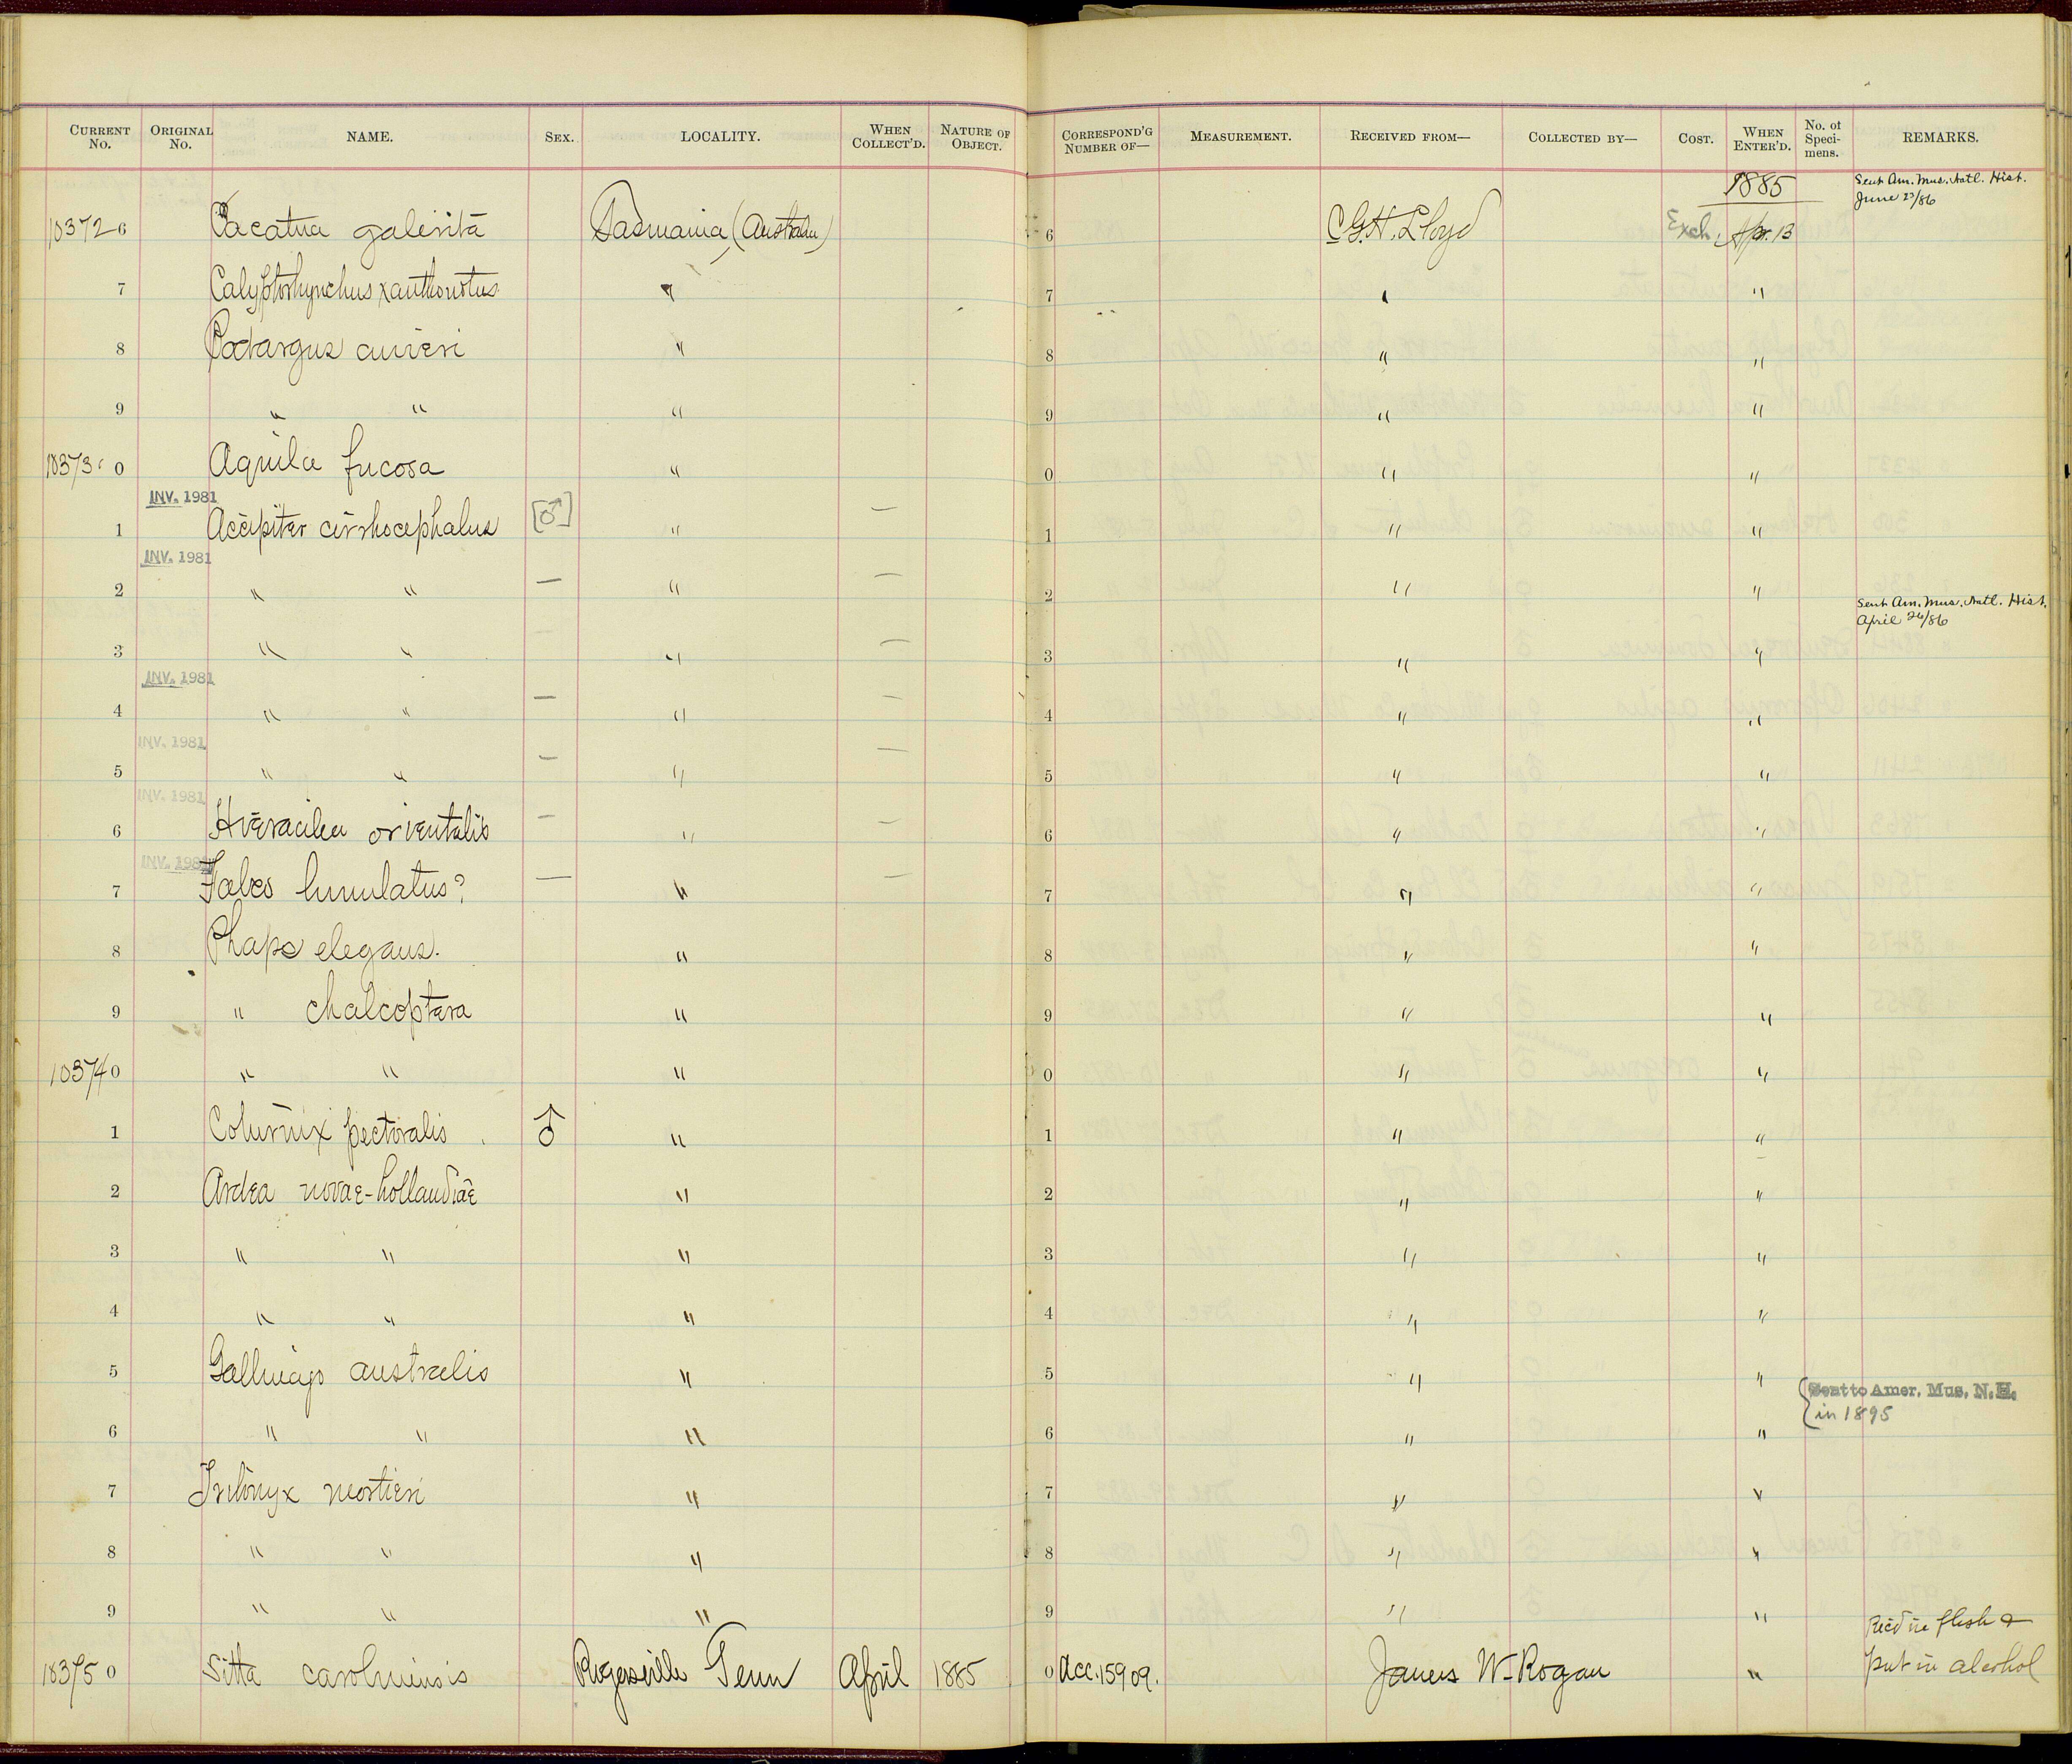 CURRENT No. ORIGINAL No. NAME. SEX. LOCALITY. WHEN COLLECT'D. NATURE OF OBJECT. CORRESPOND'G NUMBER OF— MEASUREMENT. RECEIVED FROM— COLLECTED BY— COST. WHEN ENTER'D. No. of Specimens. REMARKS.
1885 Sent Am. Mus. Natl. Hist.
June 23/86
103726 Cacatua galerita Tasmania (Australia) 6 C.G.H. Lloyd Exch. Apr. 13
7 Calyptorhynchus xanthonotus " 7 " "
8 Podargus cuvieri " 8 " "
9 " " " 9 " "
103730 Aquila fucosa " 0 " "
INV. 1981
1 Accipiter cirrhocephalus [♂] " — 1 " "
INV. 1981
2 " " — " — 2 " "
Sent Am. Mus. Natl. Hist.
April 26/86
3 " " — " — 3 " "
INV. 1981
4 " " — " — 4 " "
INV. 1981
5 " " — " — 5 " "
INV. 1981
6 Hieracidea orientalis — " — 6 " "
INV. 1981
7 Falco lunulatus? — " — 7 " "
8 Phaps elegans. " 8 " "
9 " chalcoptera " 9 " "
103740 " " " 0 " "
1 Coturnix pectoralis ♂ " 1 " "
2 Ardea novae-hollandiae " 2 " "
3 " " " 3 " "
4 " " " 4 " "
5 Gallinago australis " 5 " "
{Sent to Amer. Mus. N.H.
in 1895
6 " " " 6 " "
7 Tribonyx mortieri " 7 " "
8 " " " 8 " "
9 " " " 9 " "
Rec'd in flesh &
103750 Sitta carolinensis Rogersville Tenn April 1885 0 Acc. 15909. James W. Rogan " put in alcohol